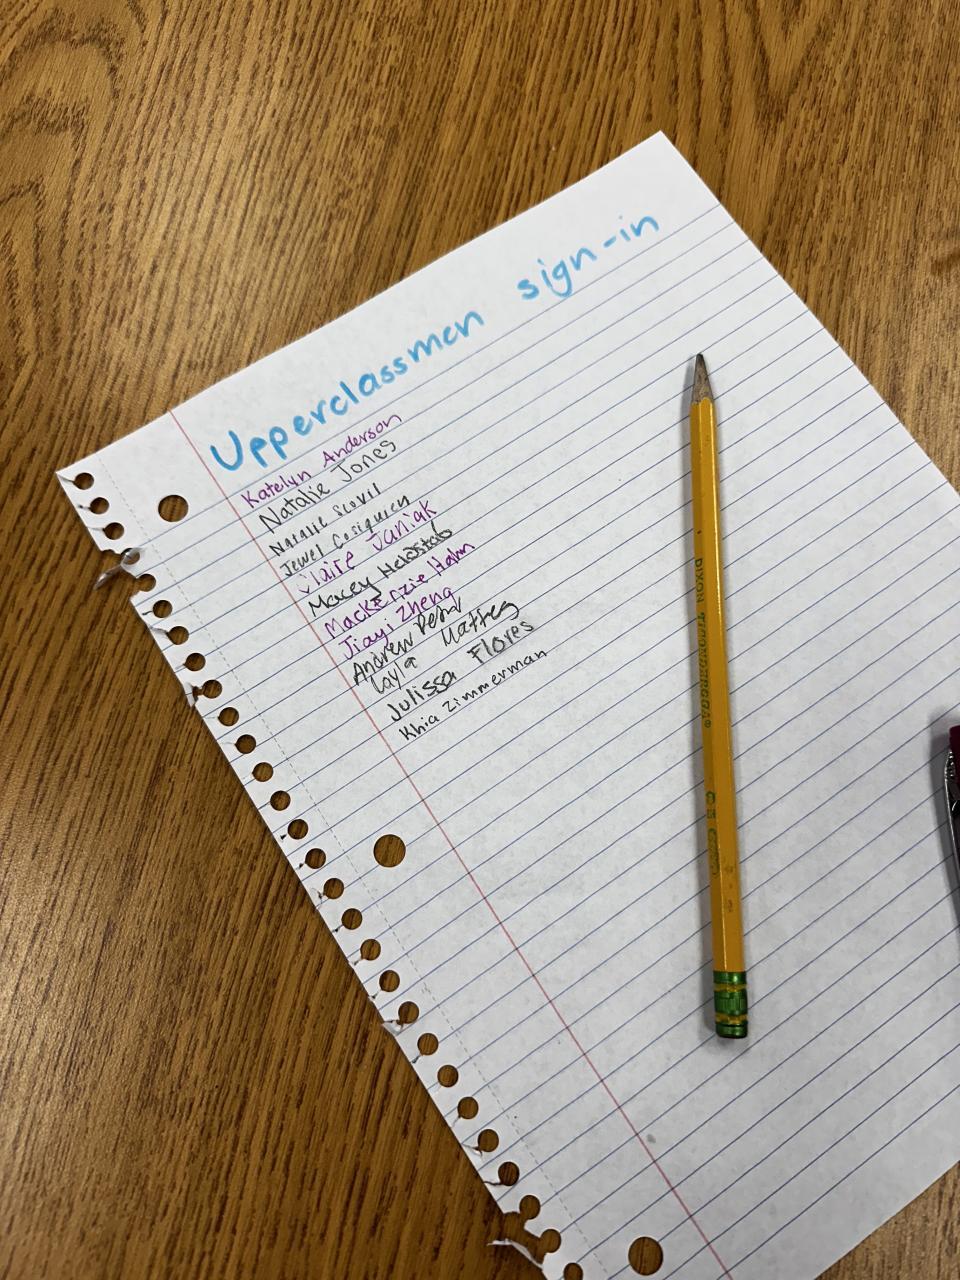 Upperclassmen sign-in
Katelyn Anderson
Natalie Jones
Natalie Scovil
Jewel
Claire Janiak
Macey
Mackenzie Hahn
Jiayi Zheng
Andrew
Layla
Julissa Flores
Khia Zimmerman
DIXON TICONDEROGA®